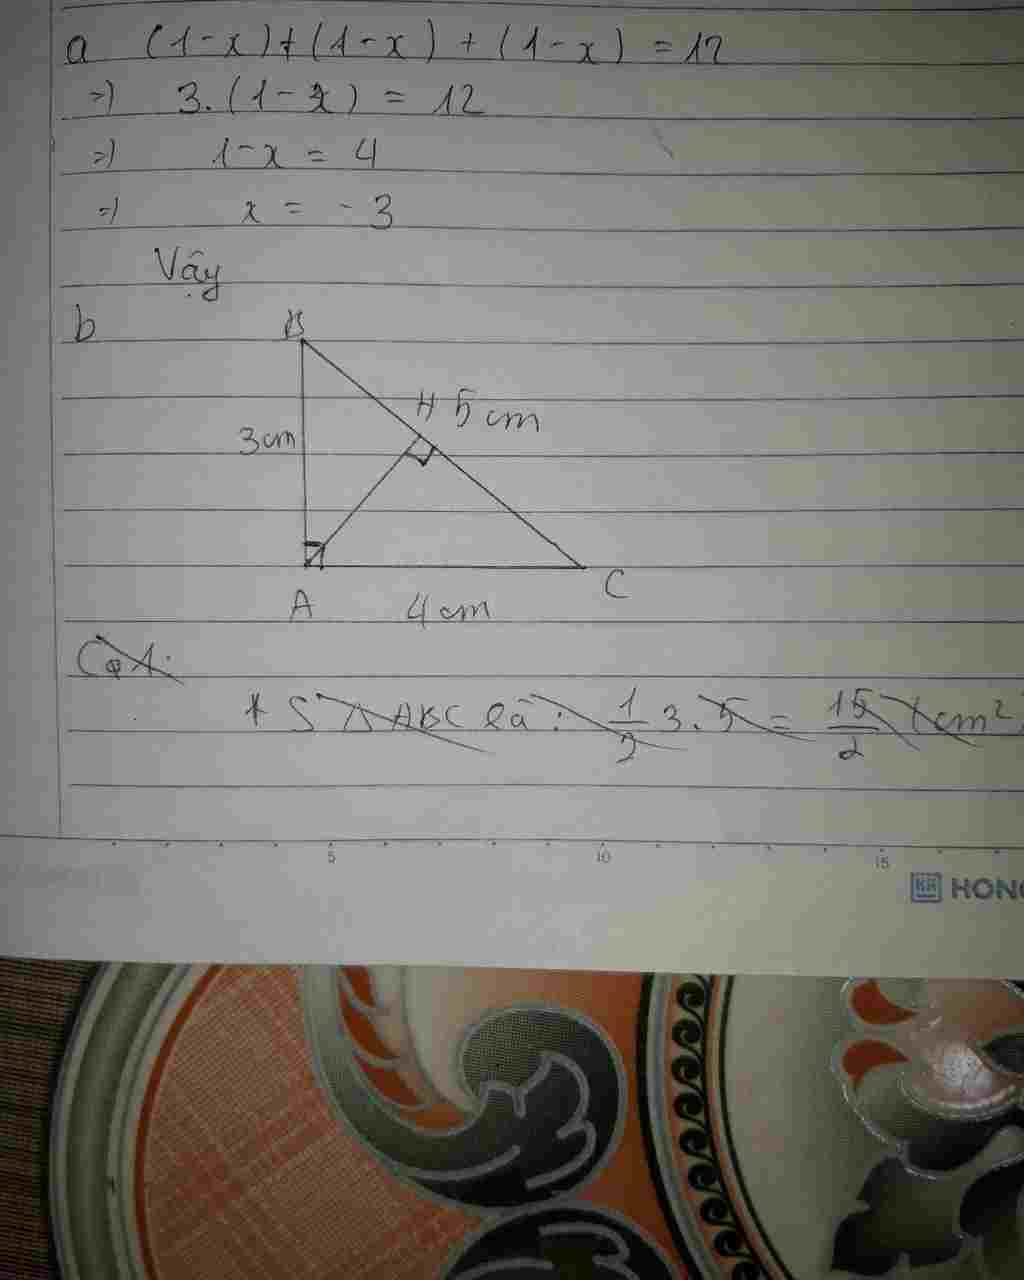 a (1-x)+(1-x)+(1-x) = 12
=) 3.(1-x) = 12
=) 1-x = 4
=) x = -3
Vậy
b
B
H 5cm
3cm
A 4cm C
* S △ABC là: 1/2 3.5 = 15/2 (cm²)
5 10 15
HONG